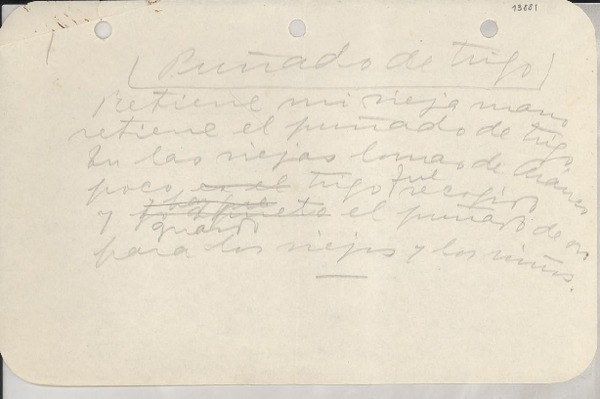 13001
(Puñado de trigo)
Retiene mi vieja mano
retiene el puñado de trigo
En las viejas lomas de
poco, es el trigo fue recogido
y el puñado de
guardo
para los viejos y los niños.